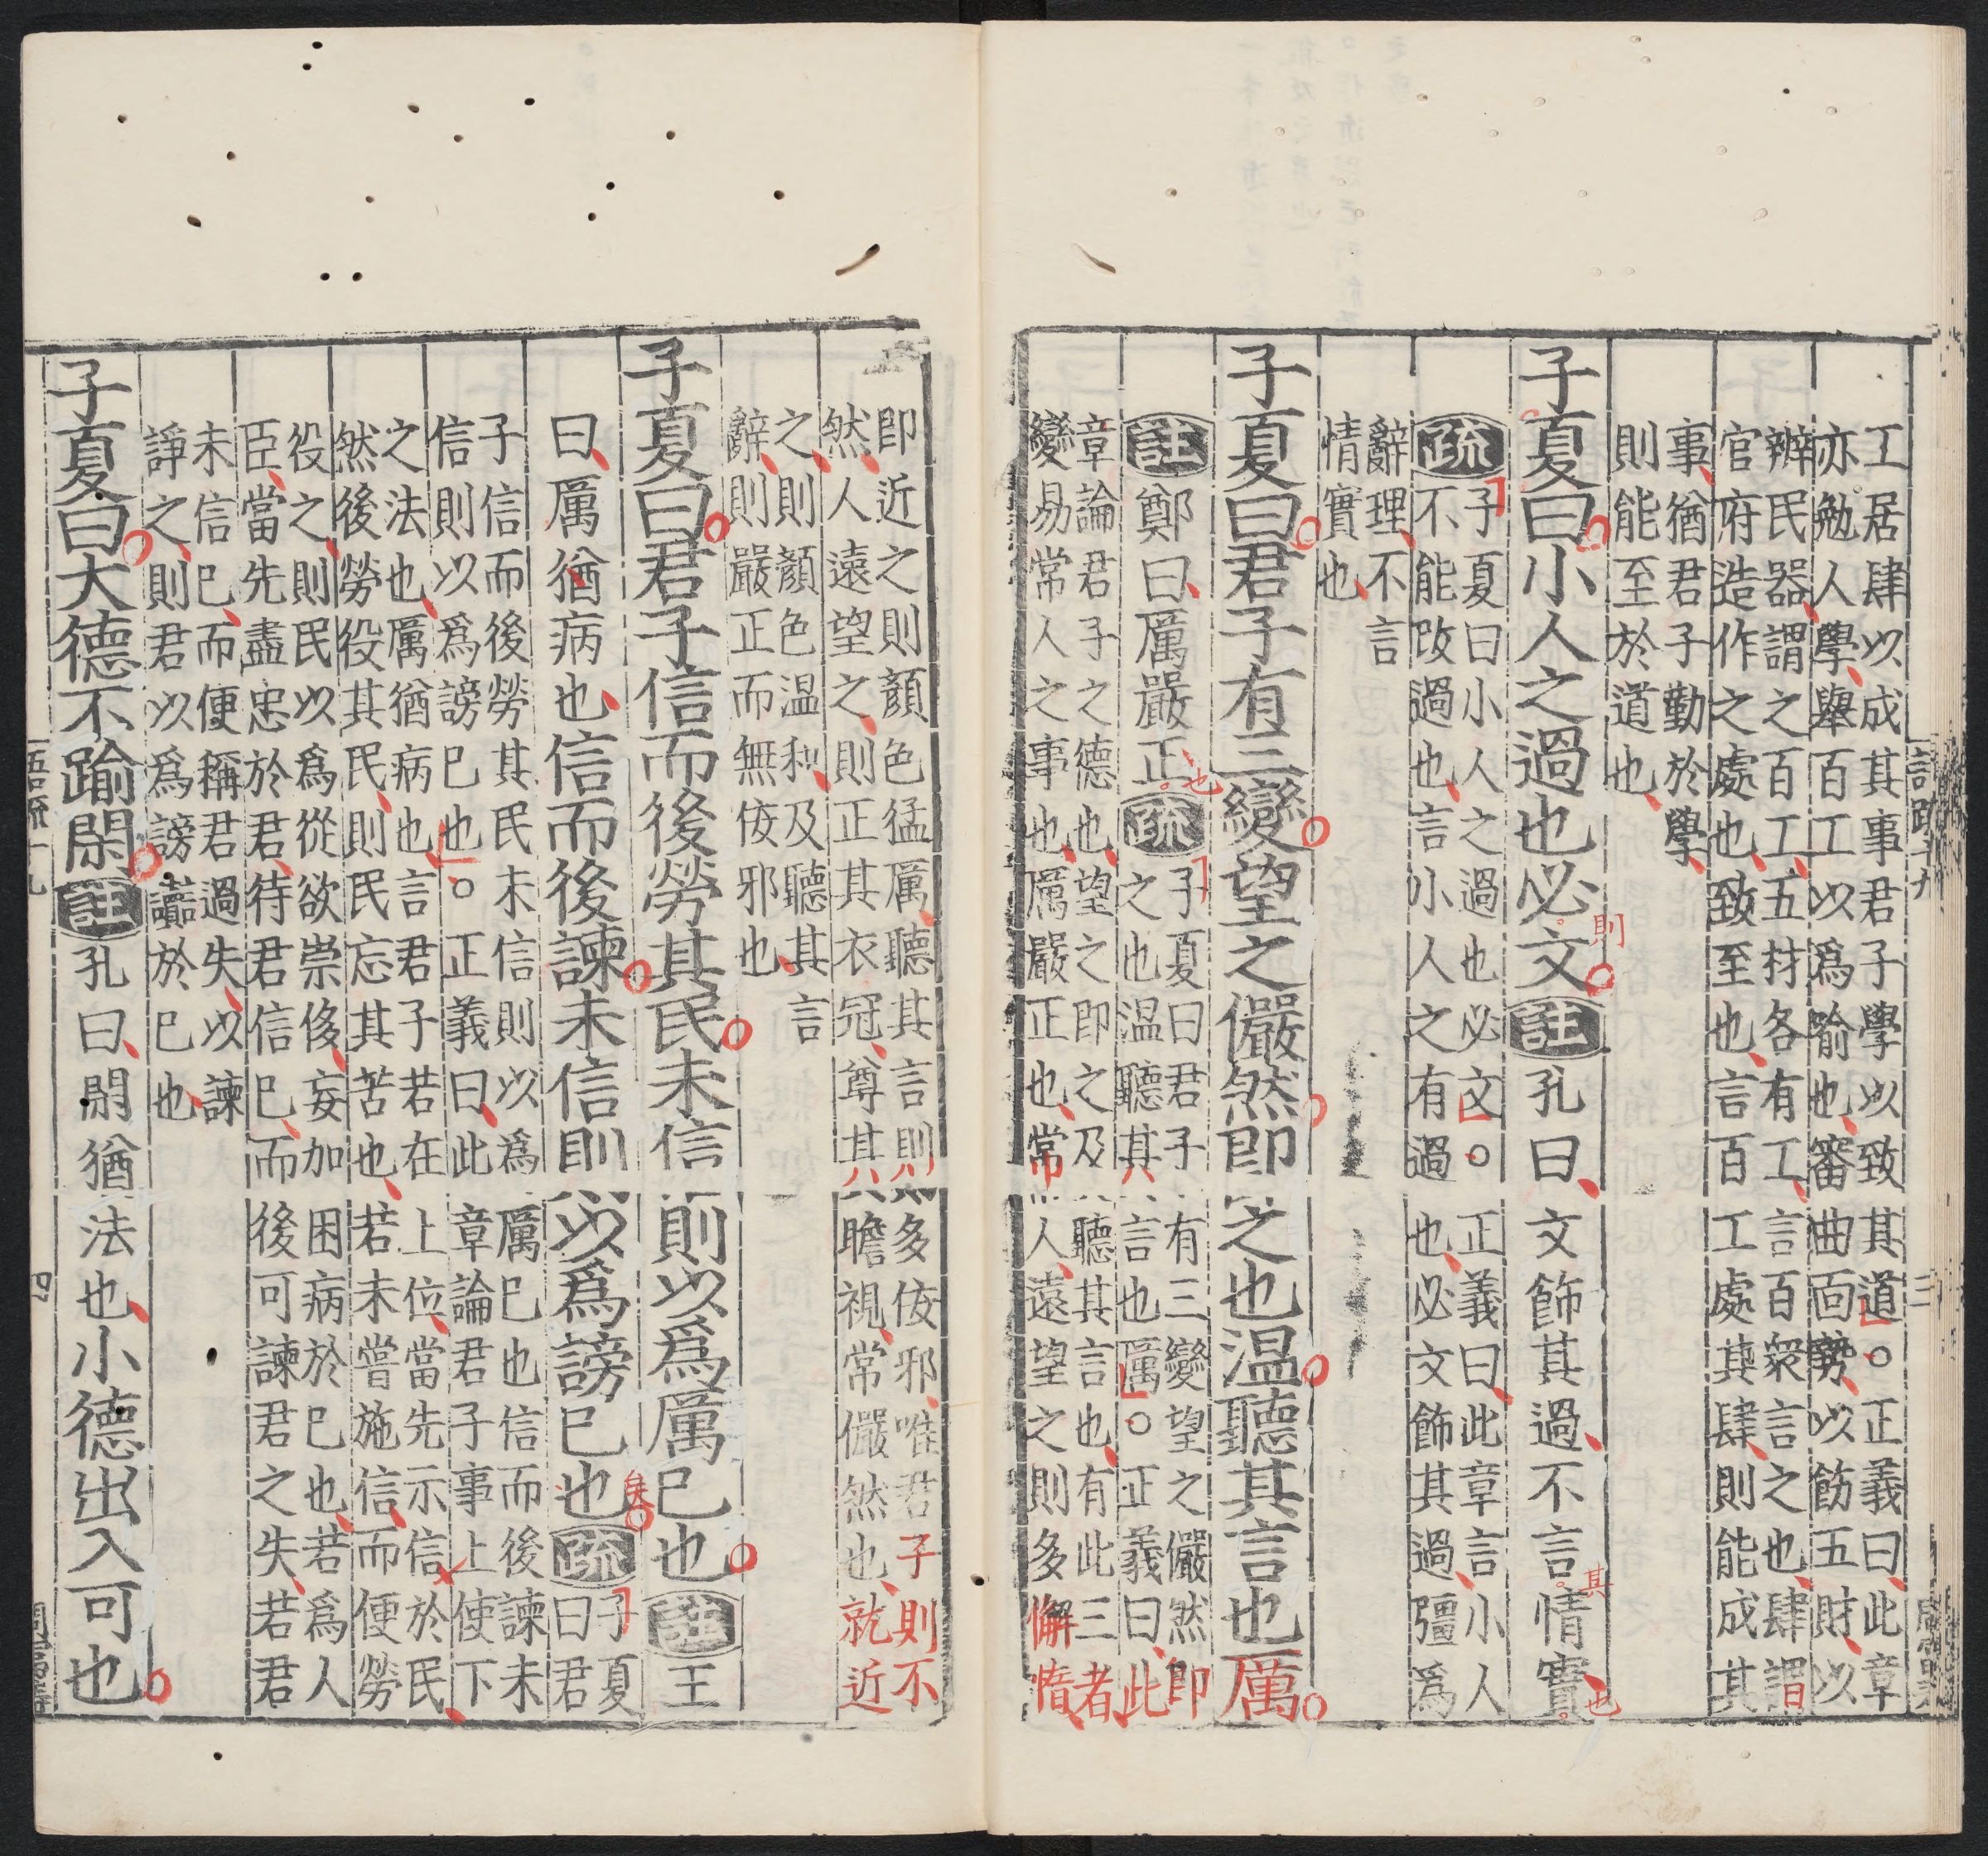 工居肆以成其事君子學以致其道。正義曰此章
亦勉人學舉百工以爲喻也審曲面勢以飭五財以
辨民器謂之百工五材各有工言百衆言之也肆謂
官府造作之處也致至也言百工處其肆則能成其
事猶君子勤於學
則能至於道也
子夏曰小人之過也必則文註孔曰文飾其過不言其情實也
疏子夏曰小人之過也必文。正義曰此章言小人
不能改過也言小人之有過也必文飾其過彊爲
辭理不言
情實也
子夏曰君子有三變望之儼然即之也温聽其言也厲
註鄭曰厲嚴正也疏子夏曰君子有三變望之儼然即
之也温聽其言也厲。正義曰此
章論君子之德也望之即之及聽其言也有此三者
變易常人之事也厲嚴正也常人遠望之則多懈惰
即近之則顏色猛厲聽其言則多佞邪唯君子則不
然人遠望之則正其衣冠尊其瞻視常儼然也就近
之則顏色温和及聽其言
辭則嚴正而無佞邪也
子夏曰君子信而後勞其民未信則以爲厲已也註王
曰厲猶病也信而後諫未信則以爲謗已也矣疏子夏
曰君
子信而後勞其民未信則以爲厲已也信而後諫未
信則以爲謗已也。正義曰此章論君子事上使下
之法也厲猶病也言君子若在上位當先示信於民
然後勞役其民則民忘其苦也若未嘗施信而便勞
役之則民以爲從欲崇侈妄加困病於已也若爲人
臣當先盡忠於君待君信已而後可諫君之失若君
未信已而便稱君過失以諫
諍之則君以爲謗讟於已也
子夏曰大德不踰閑註孔曰閑猶法也小德出入可也